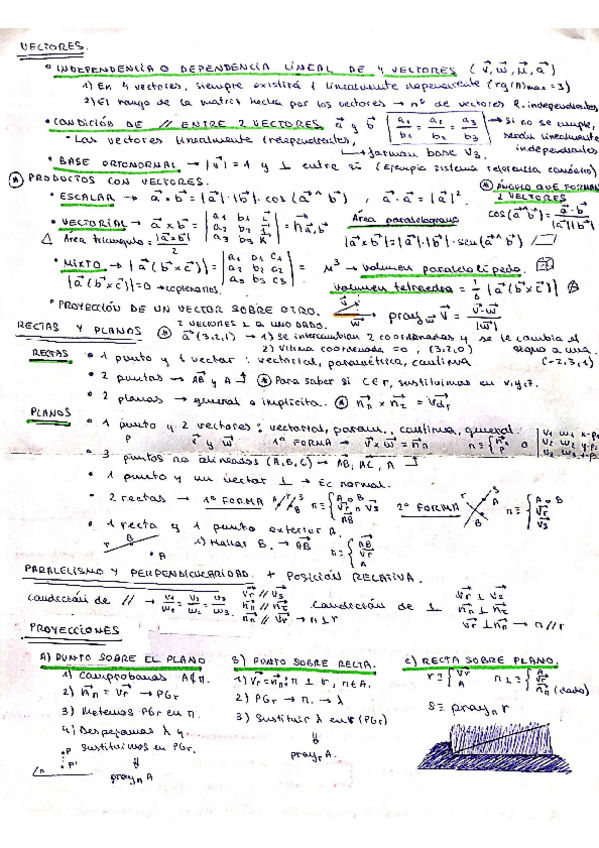 VECTORES.
• INDEPENDENCIA O DEPENDENCIA LINEAL DE 4 VECTORES (v⃗, w⃗, μ⃗, a⃗)
1) En 4 vectores, siempre existirá 1 linealmente dependiente (rg(A)max = 3)
2) El rango de la matriz hecha por los vectores → nº de vectores l. independientes
• CONDICIÓN DE // ENTRE 2 VECTORES a⃗ y b⃗ a1/b1 = a2/b2 = a3/b3 → Si no se cumple, serán linealmente independientes
- Las vectores linealmente independientes, → forman base V3.
• BASE ORTONORMAL → |v⃗| = 1 y ⊥ entre sí (Ejemplo sistema referencia canónico)
* PRODUCTOS CON VECTORES.
• ESCALAR → a⃗ · b⃗ = |a⃗| · |b⃗| · cos (a⃗ ^ b⃗) , a⃗ · a⃗ = |a⃗|²
* ÁNGULO QUE FORMAN 2 VECTORES
cos(a⃗ ^ b⃗) = a⃗ · b⃗ / |a⃗| |b⃗|
• VECTORIAL → a⃗ x b⃗ = | a1 b1 i⃗ | a2 b2 j⃗ | a3 b3 k⃗ | = n⃗ a,b
△ Área triangulo = |a⃗ x b⃗| / 2
Área paralelogramo
|a⃗ x b⃗| = |a⃗| · |b⃗| · sen (a⃗ ^ b⃗)
• MIXTO → |a⃗ (b⃗ x c⃗)| = | a1 b1 c1 | a2 b2 c2 | a3 b3 c3 | = μ³ → volumen paralelepípedo.
|a⃗ (b⃗ x c⃗)| = 0 → coplanarios.
volumen tetraedro = 1/6 |a⃗ (b⃗ x c⃗)|
• PROYECCIÓN DE UN VECTOR SOBRE OTRO. v⃗ w⃗ proy w⃗ v⃗ = v⃗ · w⃗ / |w⃗|
RECTAS Y PLANOS
* 2 VECTORES ⊥ A UNO DADO.
a⃗ (3,2,1) → 1) Se intercambian 2 coordenadas y se le cambia el signo a una. (-2,3,1)
2) Ultima coordenada = 0, (3,2,0)
RECTAS
• 1 punto y 1 vector: vectorial, paramétrica, continua
• 2 puntos → AB⃗ y A * Para saber si C ∈ r, sustituimos en x, y, z.
• 2 planos → general o implícita. * n⃗π x n⃗τ = v⃗dr
PLANOS
• 1 punto y 2 vectores: vectorial, param., continua, general.
P v⃗ y w⃗ 1ª FORMA → v⃗ x w⃗ = n⃗π
• 3 puntos no alineados (A, B, C) → AB⃗, AC⃗, A
• 1 punto y un vector ⊥ → Ec normal.
- 2 rectas → 1ª FORMA A r s B π ≡ { A o B v⃗r AB⃗ 2ª FORMA r s A B π ≡ { A o B v⃗r v⃗s
• 1 recta y 1 punto exterior A.
r B • A 1) Hallar B. → AB⃗ π ≡ { AB⃗ v⃗r A
PARALELISMO Y PERPENDICULARIDAD. + POSICIÓN RELATIVA.
Condición de // → v1/w1 = v2/w2 = v3/w3 v⃗r // v⃗s n⃗π // n⃗τ n⃗π // v⃗r → π ⊥ r
Condición de ⊥ v⃗r ⊥ v⃗s n⃗π ⊥ n⃗τ v⃗r ⊥ n⃗π → π // r
PROYECCIONES
A) PUNTO SOBRE EL PLANO
1) Comprobamos A∉π.
2) n⃗π = v⃗r → PGr
3) Metemos PGr en π.
4) Despejamos λ y sustituimos en PGr.
• P • P' π
⇓
proy π A
B) PUNTO SOBRE RECTA.
1) v⃗r = n⃗π; π ⊥ r, π ∈ A.
2) PGr → π. → λ
3) Sustituir λ en r (PGr)
⇓
proy r A.
C) RECTA SOBRE PLANO.
r ≡ { v⃗r A π⊥ ≡ { A v⃗r n⃗π (dado)
s ≡ proy π r